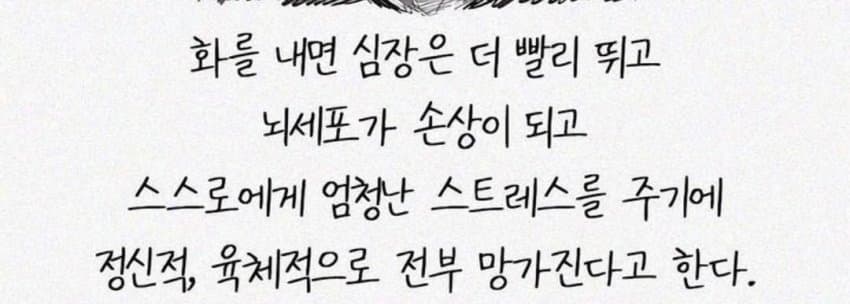 화를 내면 심장은 더 빨리 뛰고
뇌세포가 손상이 되고
스스로에게 엄청난 스트레스를 주기에
정신적, 육체적으로 전부 망가진다고 한다.